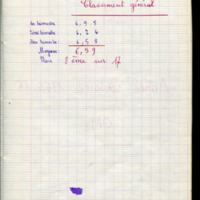 Classement général
1er trimestre 6,95
2ème trimestre 6,24
3ème trimestre 6,58
Moyenne 6,59
Place 8 ème sur 17